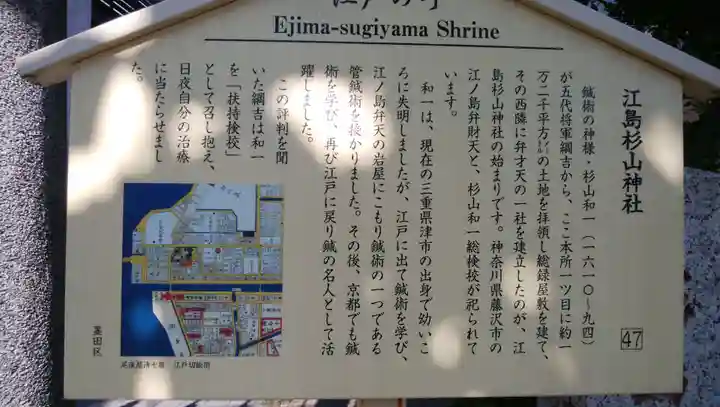 江戸の町
Ejima-sugiyama Shrine
江島杉山神社
47
鍼術の神様・杉山和一(一六一〇〜九四)
が五代将軍綱吉から、ここ本所一ツ目に約一
万二千平方メートルの土地を拝領し総録屋敷を建て、
その西隣に弁才天の一社を建立したのが、江
島杉山神社の始まりです。神奈川県藤沢市の
江ノ島弁財天と、杉山和一総検校が祀られて
います。
和一は、現在の三重県津市の出身で幼いこ
ろに失明しましたが、江戸に出て鍼術を学び、
江ノ島弁天の岩屋にこもり鍼術の一つである
管鍼術を授かりました。その後、京都でも鍼
術を学び、再び江戸に戻り鍼の名人として活
躍しました。
この評判を聞
いた綱吉は和一
を「扶持検校」
として召し抱え、
日夜自分の治療
に当たらせまし
た。
尾張屋清七版 江戸切絵図
墨田区